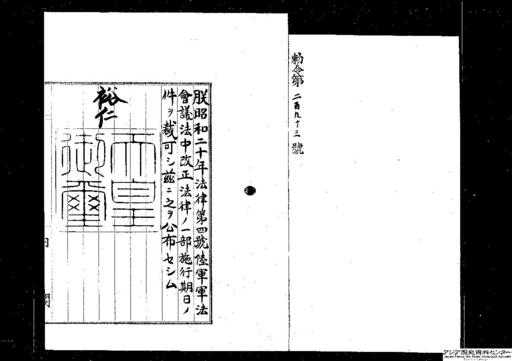 勅令第二百九十三號
朕昭和二十年法律第四號陸軍軍法
會議法中改正法律ノ一部施行期日ノ
件ヲ裁可シ茲ニ之ヲ公布セシム
裕仁
天皇御璽
内閣
アジア歴史資料センター